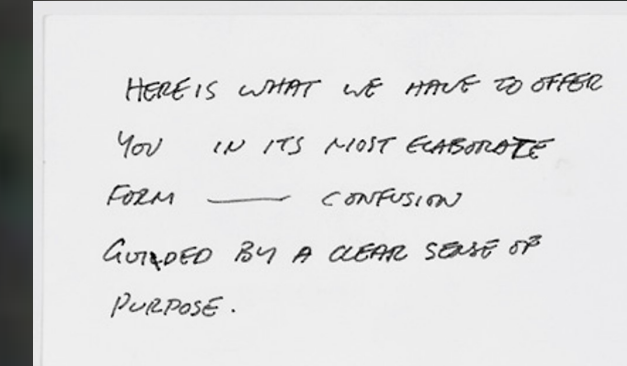 HERE IS WHAT WE HAVE TO OFFER
YOU IN ITS MOST ELABORATE
FORM —— CONFUSION
GUIDED BY A CLEAR SENSE OF
PURPOSE.